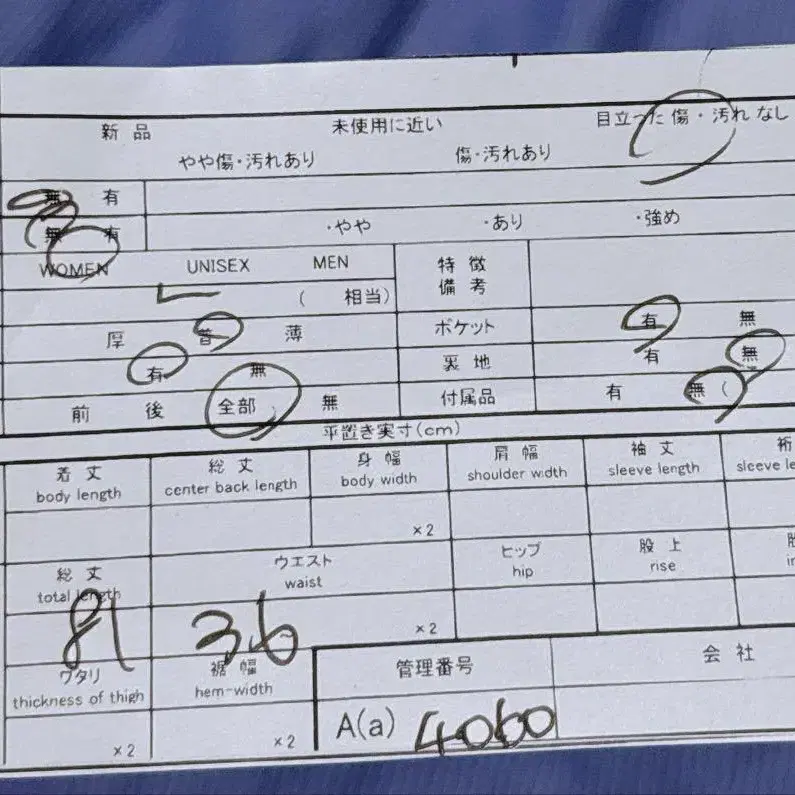 新品 未使用に近い 目立った傷・汚れなし
やや傷・汚れあり 傷・汚れあり
無 有
無 有 ・やや ・あり ・強め
WOMEN UNISEX MEN 特徴
L ( 相当) 備考
厚 普 薄 ポケット 有 無
有 無 裏地 有 無
前 後 全部 無 付属品 有 無 (
平置き実寸(cm)
着丈 総丈 身幅 肩幅 袖丈 裄
body length center back length body width shoulder width sleeve length sleeve le
×2
総丈 ウエスト ヒップ 股上
total length waist hip rise
81 36 ×2
ワタリ 裾幅 管理番号 会社
thickness of thigh hem-width
×2 ×2 A(a) 4060